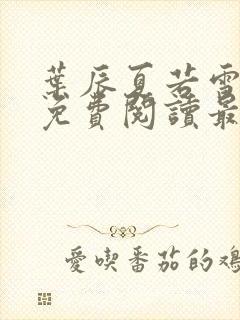 葉辰夏若雪
免費閱讀最
愛喫番茄的雞